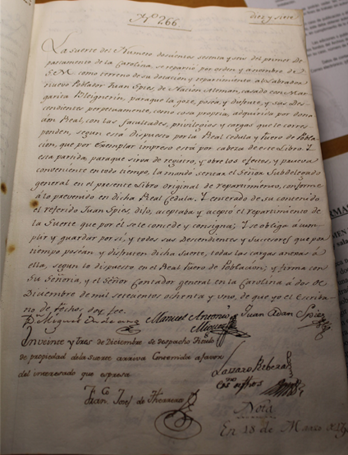 Diez y siete
Nº 266
La suerte del Número doscientos sesenta y seis del primer de
partamento de la Carolina, se reparte por orden y acuerdo de
S.M. como terreno de su dotacion y repartimiento al Labrador
nuevo Poblador Juan Spies, de Nacion Aleman, casado con Mar
garita, para que la goze, posea, y disfrute, y sus Des
cendientes perpetuamente, como cosa propia, adquirida por dona
cion Real, con las facultades, privilegios y cargas que le corres
ponden, segun está dispuesto por la Real Cedula y fuero de Pobla
cion, que por exemplar impreso está por cabeza de este Libro. Y
esta partida, para que sirva de registro, y obre los efectos, que mas
convenga en todo tiempo, la mandó sentar el Señor Subdelegado
general en el presente Libro original de repartimiento, conforme
á lo prevenido en dicha Real Cedula. Y enterado de su contenido
el referido Juan Spies, dijo, aceptaba y aceptó el repartimiento de
la Suerte que por él se le concede y consigna; Y se obliga á cum
plir y guardar por sí, y todos sus descendientes y sucesores que por
tiempo posean y disfruten dicha Suerte, todas las cargas anexas á
ella, segun lo dispuesto en el Real fuero de Poblacion; y firma con
Su Señoria, y el Señor Contador general en la Carolina á dos de
Diciembre de mil setecientos ochenta y uno, de que yo el Escriba
no de fechos doy fee.
D. Miguel de Ondeano Manuel Antonio Juan Adan Spies
En veinte y tres de Diciembre se despachó Titulo
de propiedad de la suerte arriva Contenida a favor
del interesado que expresa.
Lazaro
Juan Josef de
Nota
En 18 de Marzo